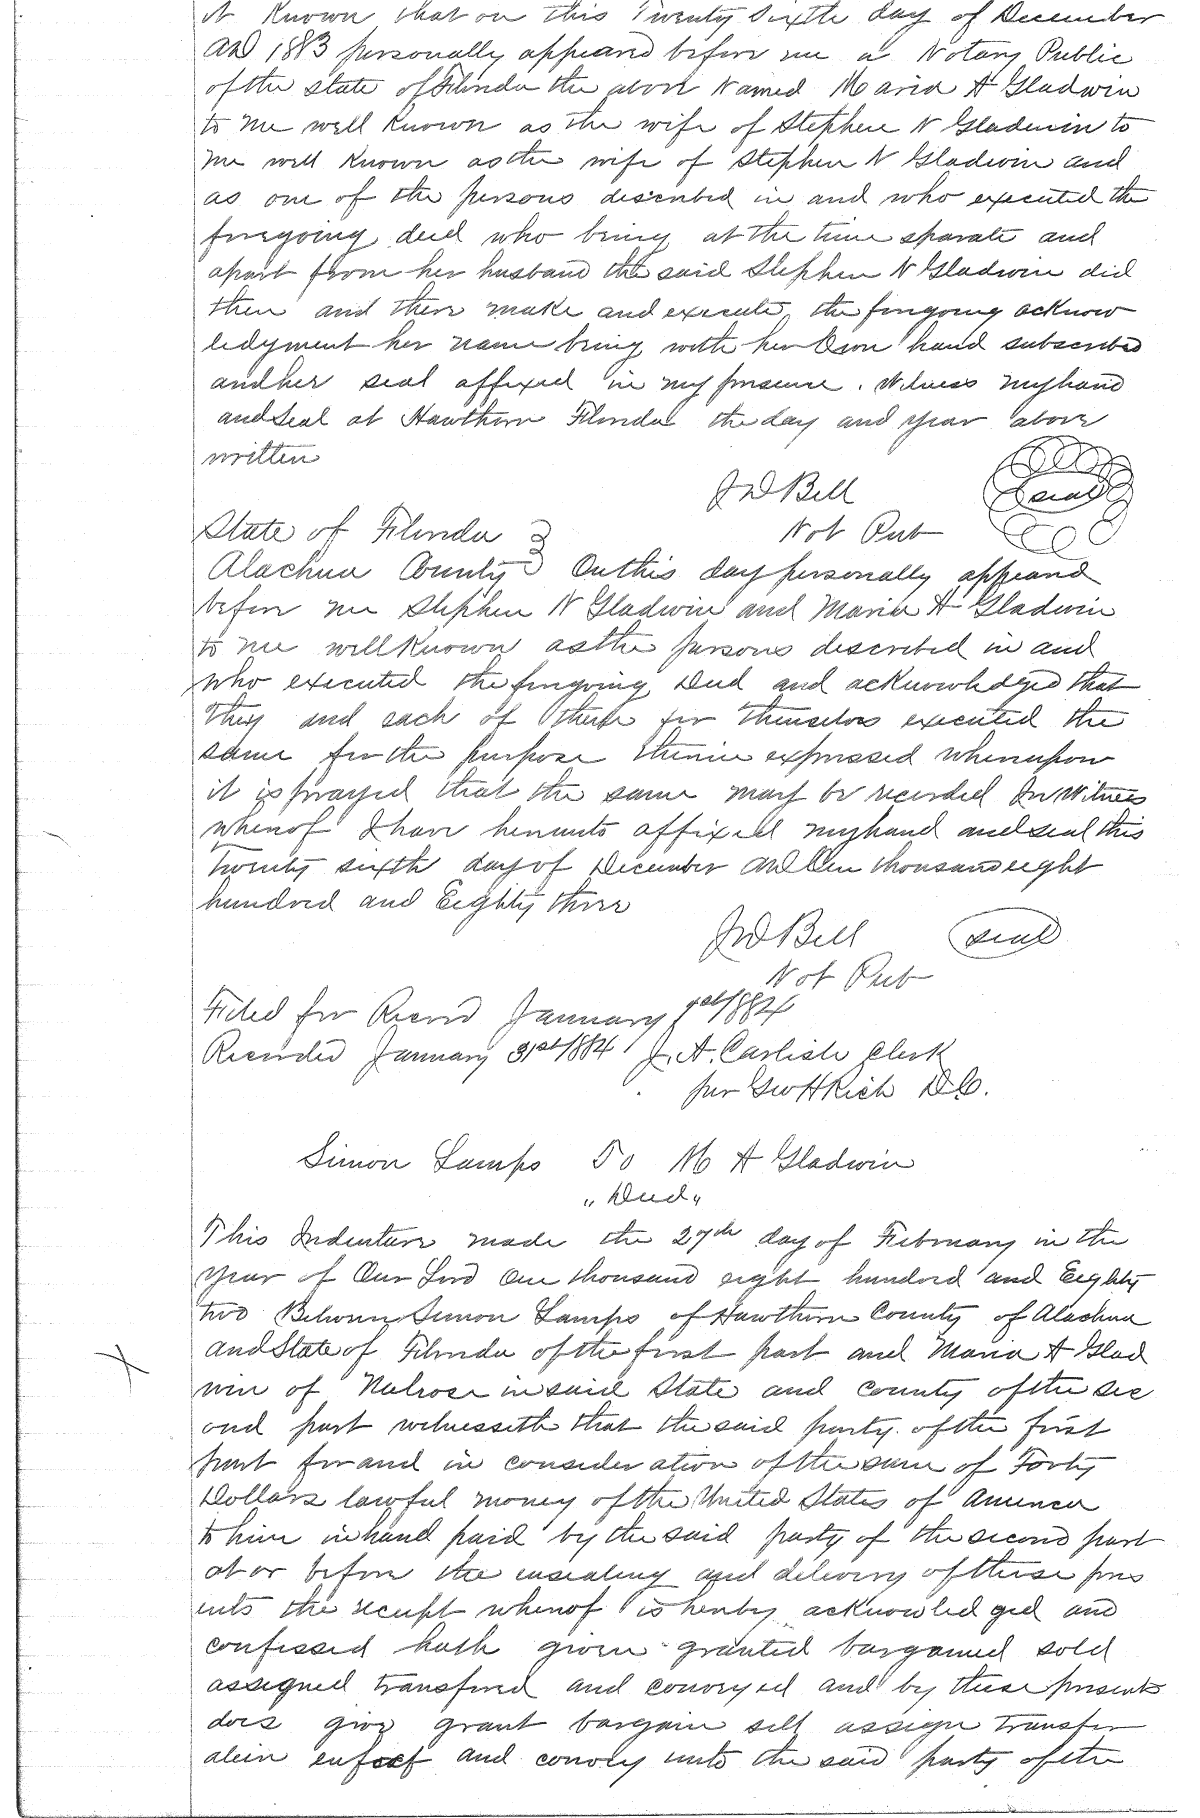 it Known that on this Twenty Sixth day of December
AD 1883 personally appeared before me a Notary Public
of the state of Florida the above Named Maria A Gladwin
to me well Known as the wife of Stephen N Gladwin to
me well Known as the wife of Stephen N Gladwin and
as one of the persons described in and who executed the
foregoing deed who being at the time sparate and
apart from her husband the said Stephen N Gladwin did
then and there make and execute the foregoing acknow
ledgment her name being with her Own hand subscribed
and her seal affixed in my presence. Witness my hand
and Seal at Hawthorn Florida the day and year above
written
J W Bell (seal)
Not Pub
State of Florida }
Alachua County } On this day personally appeared
before me Stephen N Gladwin and Maria A Gladwin
to me well Known as the persons described in and
who executed the foregoing Deed and acknowledged that
they and each of them for themselves executed the
same for the purpose therein expressed whereupon
it is prayed that the same may be recorded In Witness
whereof I have hereunto affixed my hand and seal this
Twenty sixth day of December AD One thousand eight
hundred and Eighty three
J W Bell (seal)
Not Pub
Filed for Record January 1st 1884
Recorded January 31st 1884 J. A. Carlisle Clerk
per Geo H Rich D.C.
Simon Lamps To M A Gladwin
"Deed"
This Indenture made the 27th day of February in the
year of Our Lord One thousand eight hundred and Eighty
two Between Simon Lamps of Hawthorn County of Alachua
and State of Florida of the first part and Maria A Glad
win of Melrose in said State and County of the sec
ond part witnesseth that the said party of the first
part for and in consideration of the sum of Forty
Dollars lawful money of the United States of America
to him in hand paid by the said party of the second part
at or before the ensealing and delivery of these pres
ents the receipt whereof is hereby acknowledged and
confessed hath given granted bargained sold
assigned transfered and conveyed and by these presents
does give grant bargain sell assign transfer
alein enfeof and convey unto the said party of the